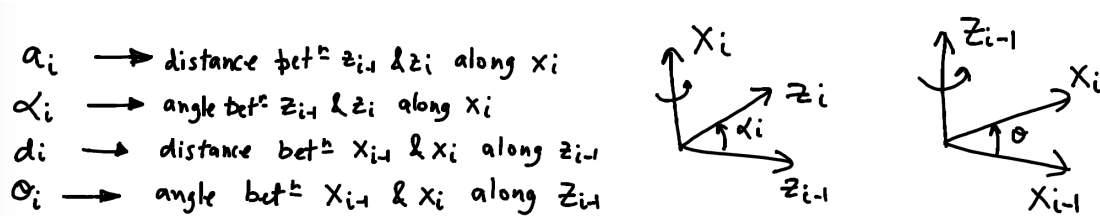 aᵢ → distance betⁿ zᵢ₋₁ & zᵢ along xᵢ
αᵢ → angle betⁿ zᵢ₋₁ & zᵢ along xᵢ
dᵢ → distance betⁿ xᵢ₋₁ & xᵢ along zᵢ₋₁
θᵢ → angle betⁿ xᵢ₋₁ & xᵢ along zᵢ₋₁
xᵢ
zᵢ
αᵢ
zᵢ₋₁
zᵢ₋₁
xᵢ
θ
xᵢ₋₁